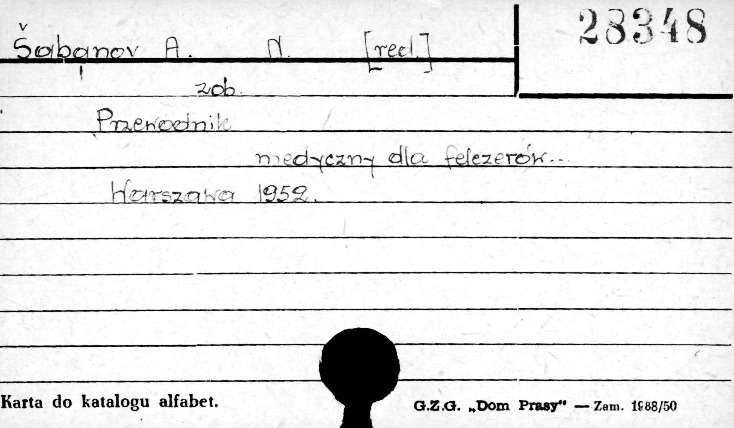 28348
Šabanov A. N. [red.]
zob.
Przewodnik
medyczny dla felczerów...
Warszawa 1952.
Karta do katalogu alfabet. G.Z.G. „Dom Prasy" — Zam. 1988/50